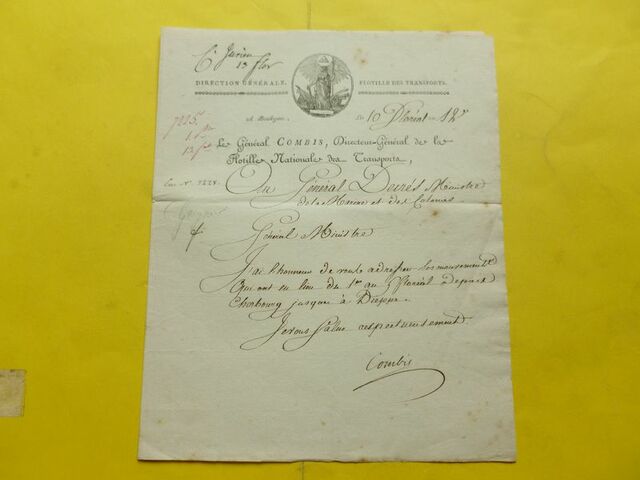 Cn Jurien
13 flor
DIRECTION GÉNÉRALE. FLOTILLE DES TRANSPORTS.
A Boulogne, Le 10 Floréal 12
7215
13
Le Général COMBIS, Directeur-Général de la
Flotille Nationale des Transports,
Au Général Decrès Ministre
de la Marine et des Colonies
Général Ministre
J'ai l'honneur de vous adresser les mouvements
Qui ont eu lieu du 1er au 5 floréal depuis
Cherbourg jusques à Dieppe.
Je vous salue respectueusement.
Combis